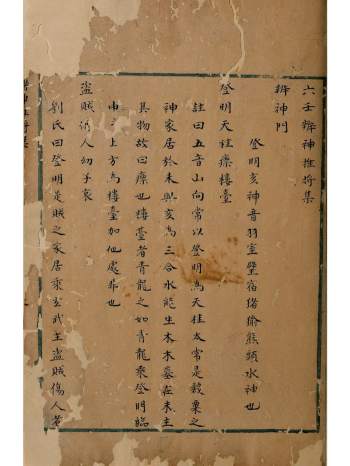 六壬辨神推將集
辨神門
登明亥神音羽室壁宿猪偷熊頭水神也
登明天柱癢樓臺
註曰五音山向常以登明為天柱太常是穀粟之
神家居於未與亥為三合水能生木木墓在未主
其物故曰癢也樓臺者青龍之如青龍乘登明臨
申上方為樓臺加他處非也
盜賊傷人幼子哀
劉氏曰登明是賊之家居乘玄武主盜賊傷人若